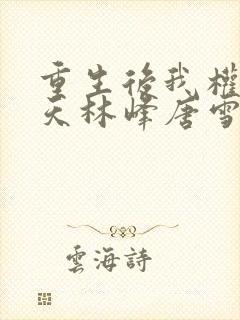 重生後我權
天林峰唐雪
雲海詩